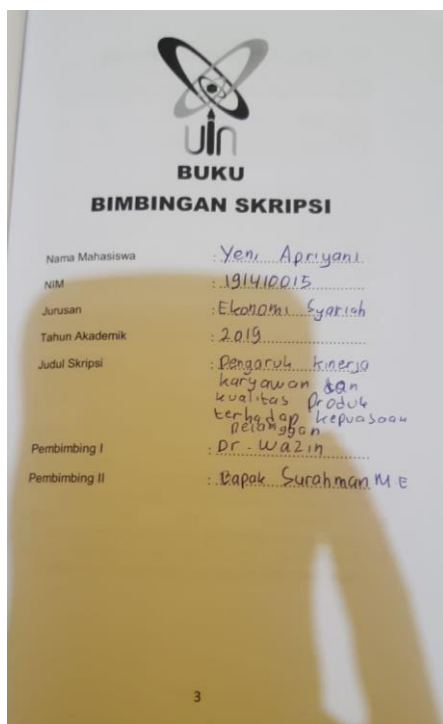 uin
BUKU
BIMBINGAN SKRIPSI
Nama Mahasiswa : Yeni Apriyani
NIM : 191410015
Jurusan : Ekonomi Syariah
Tahun Akademik : 2019
Judul Skripsi : Pengaruh kinerja
karyawan dan
kualitas Produk
terhadap kepuasaan
pelanggan
Pembimbing I : Dr. Wazin
Pembimbing II : Bapak Surahman M.E
3